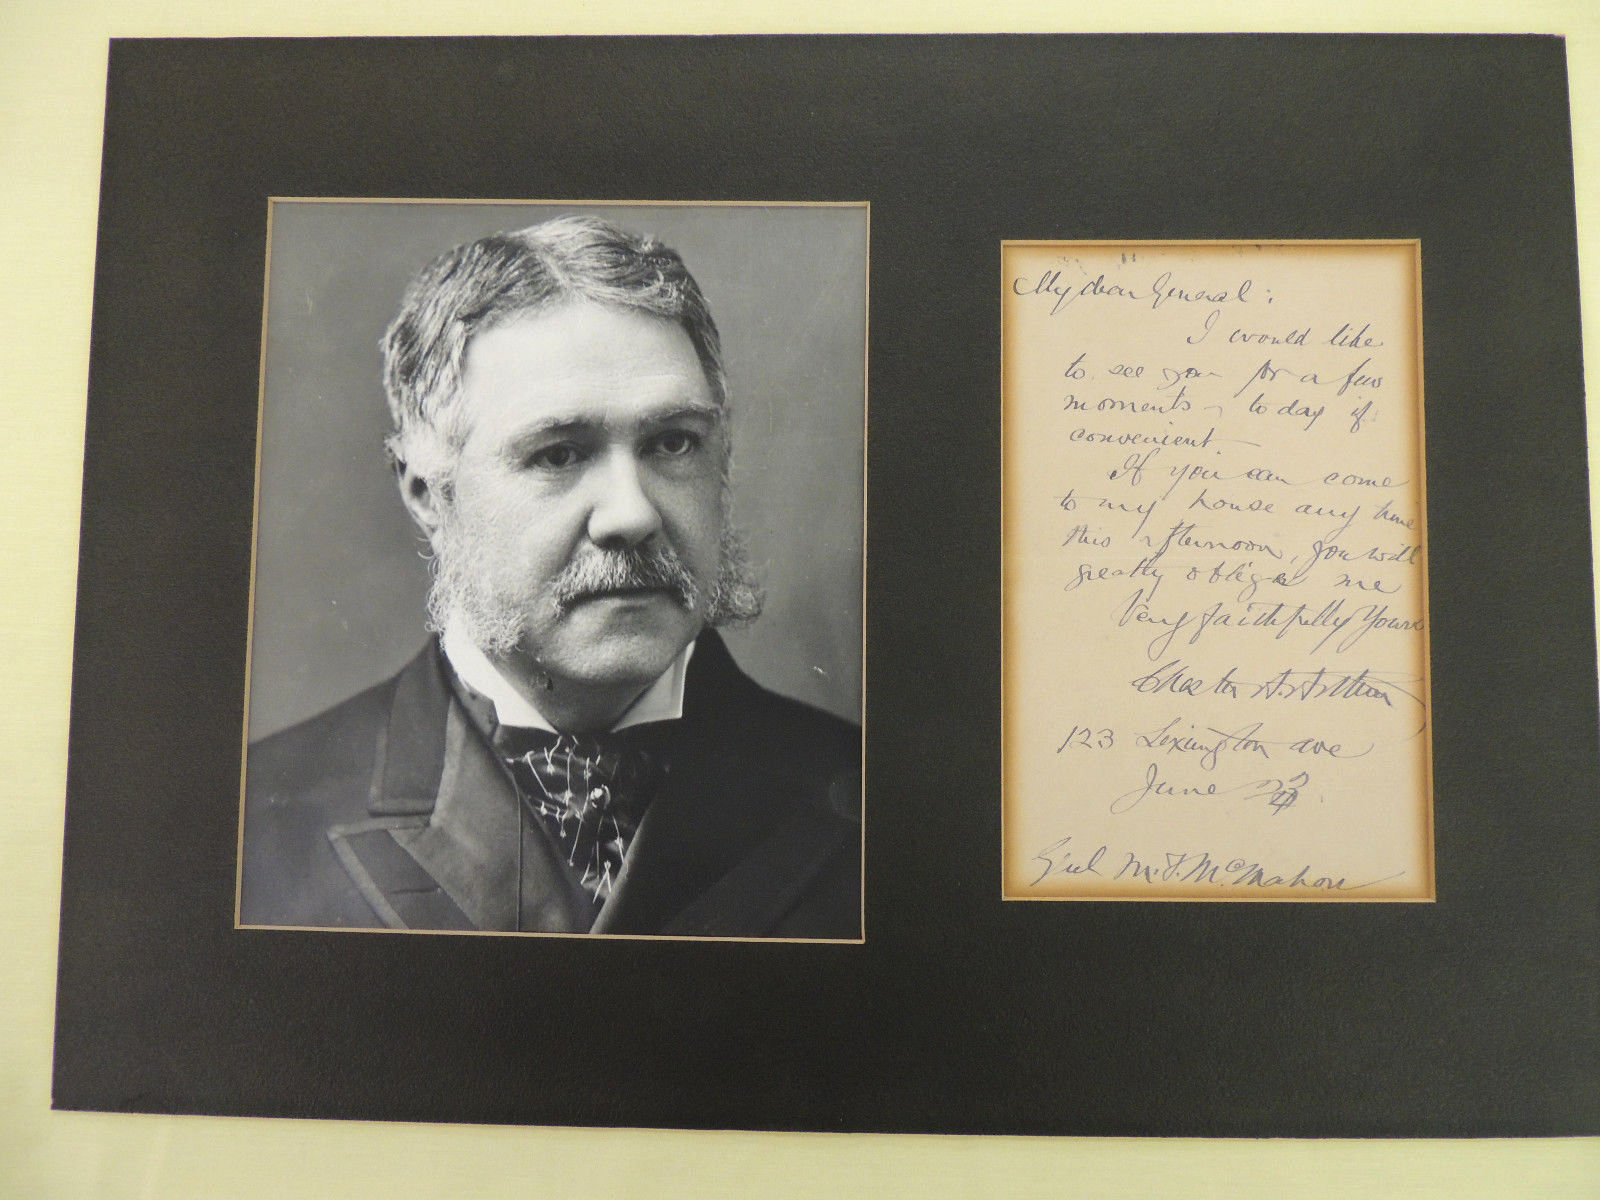 My dear General:
I would like
to see you for a few
moments - to day if
convenient
If you can come
to my house any time
this afternoon, you will
greatly oblige me
Very faithfully Yours
Chester A. Arthur
123 Lexington ave
June
Genl M. T. McMahon